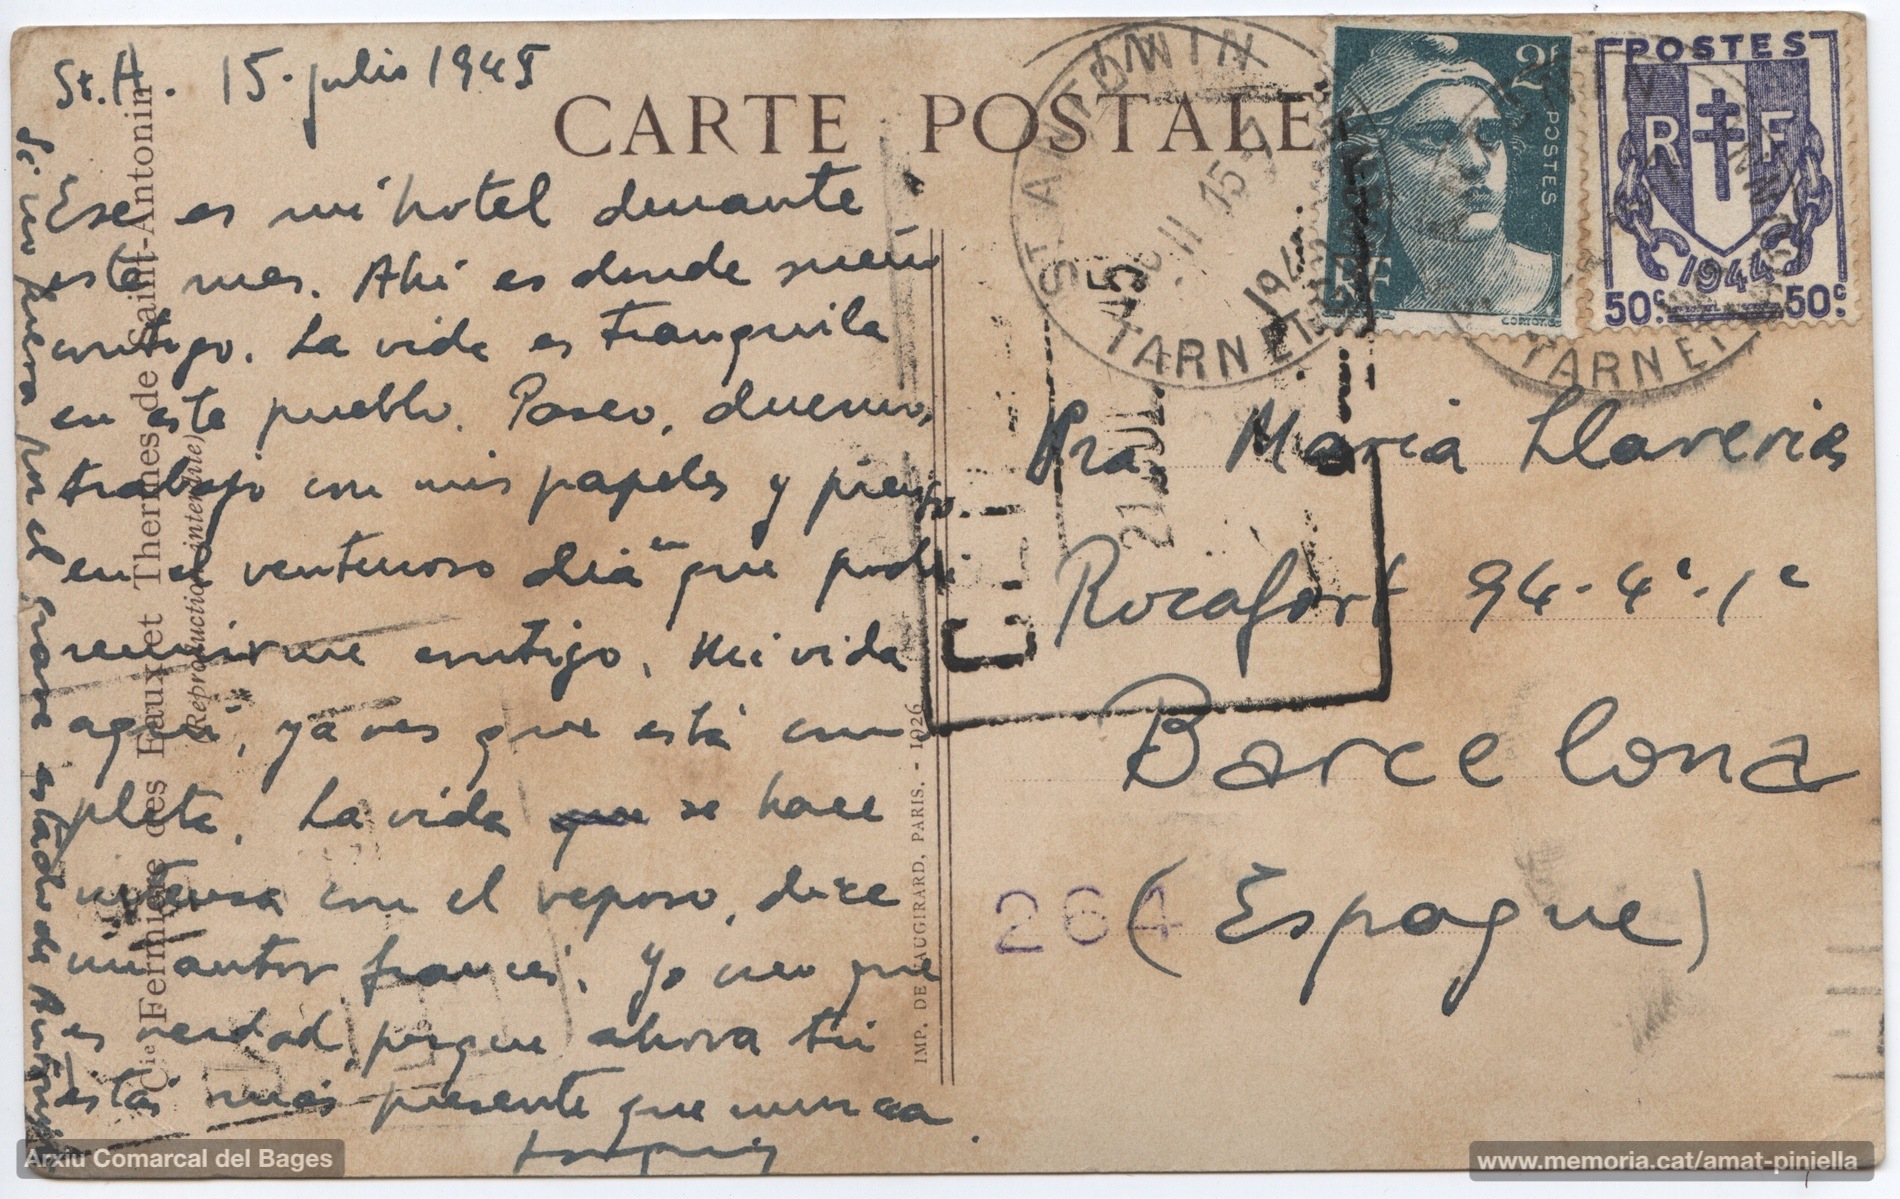 St. A. 15 - julio 1945
CARTE POSTALE
Ese es mi hotel durante
este mes. Ahí es donde sueño
contigo. La vida es tranquila
en este pueblo. Paseo, duermo,
trabajo con mis papeles y pienso
en el venturoso día en que podré
reunirme contigo. Mi vida
aquí, ya ves que está com
pleta. La vida que se hace
intensa con el reposo, dice
un autor francés. Yo creo que
es verdad porque ahora tú
estás más presente que nunca.
Si no fuera por el grave estado de
Cie Fermière des Eaux et Thermes de Saint-Antonin
(Reproduction interdite)
IMP. DE VAUGIRARD, PARIS. - 1926
ST ANTONIN
TARN ET
15
1945
2F
POSTES
RF
POSTES
RF
1944
50c. 50c
TARN ET
21 JUL 45
Sra. Maria Llaverias
Rocafort 94 - 4º - 1ª
Barcelona
264
(Espagne)
Arxiu Comarcal del Bages
www.memoria.cat/amat-piniella